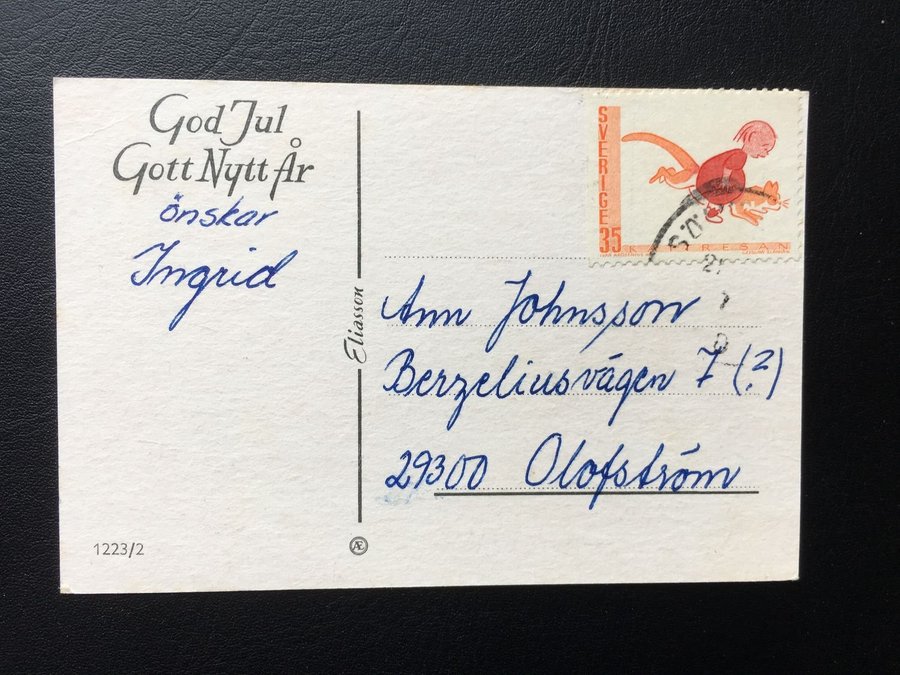 God Jul
Gott Nytt År
önskar
Ingrid
1223/2
Eliasson
Æ
SVERIGE
35
RESAN
Ann Johnsson
Berzeliusvägen 7 (?)
29300 Olofström